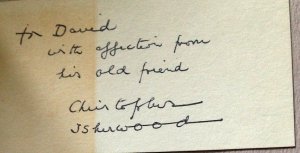 for David
with affection from
his old friend
Christopher
Isherwood